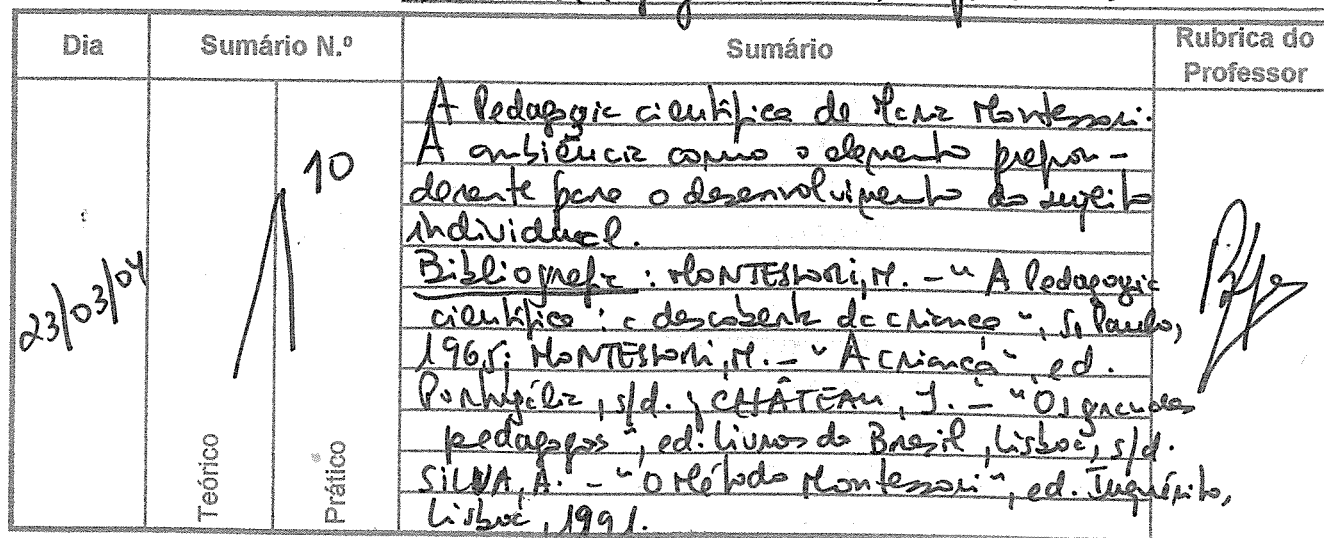 Dia
Sumário N.º
Sumário
Rubrica do
Professor
23/03/04
10
Teórico
Prático
A Pedagogia científica de Maria Montessori.
A ambiência como o elemento prepon-
derante para o desenvolvimento do sujeito
individual.
Bibliografia: MONTESSORI, M. - "A Pedagogia
científica: a descoberta da criança", S. Paulo,
1965; MONTESSORI, M. - "A criança", ed.
Portugália, s/d.; CHÂTEAU, J. - "Os grandes
pedagogos", ed. Livros do Brasil, Lisboa, s/d.
SILVA, A. - "O Método Montessori", ed. Inquérito,
Lisboa, 1991.